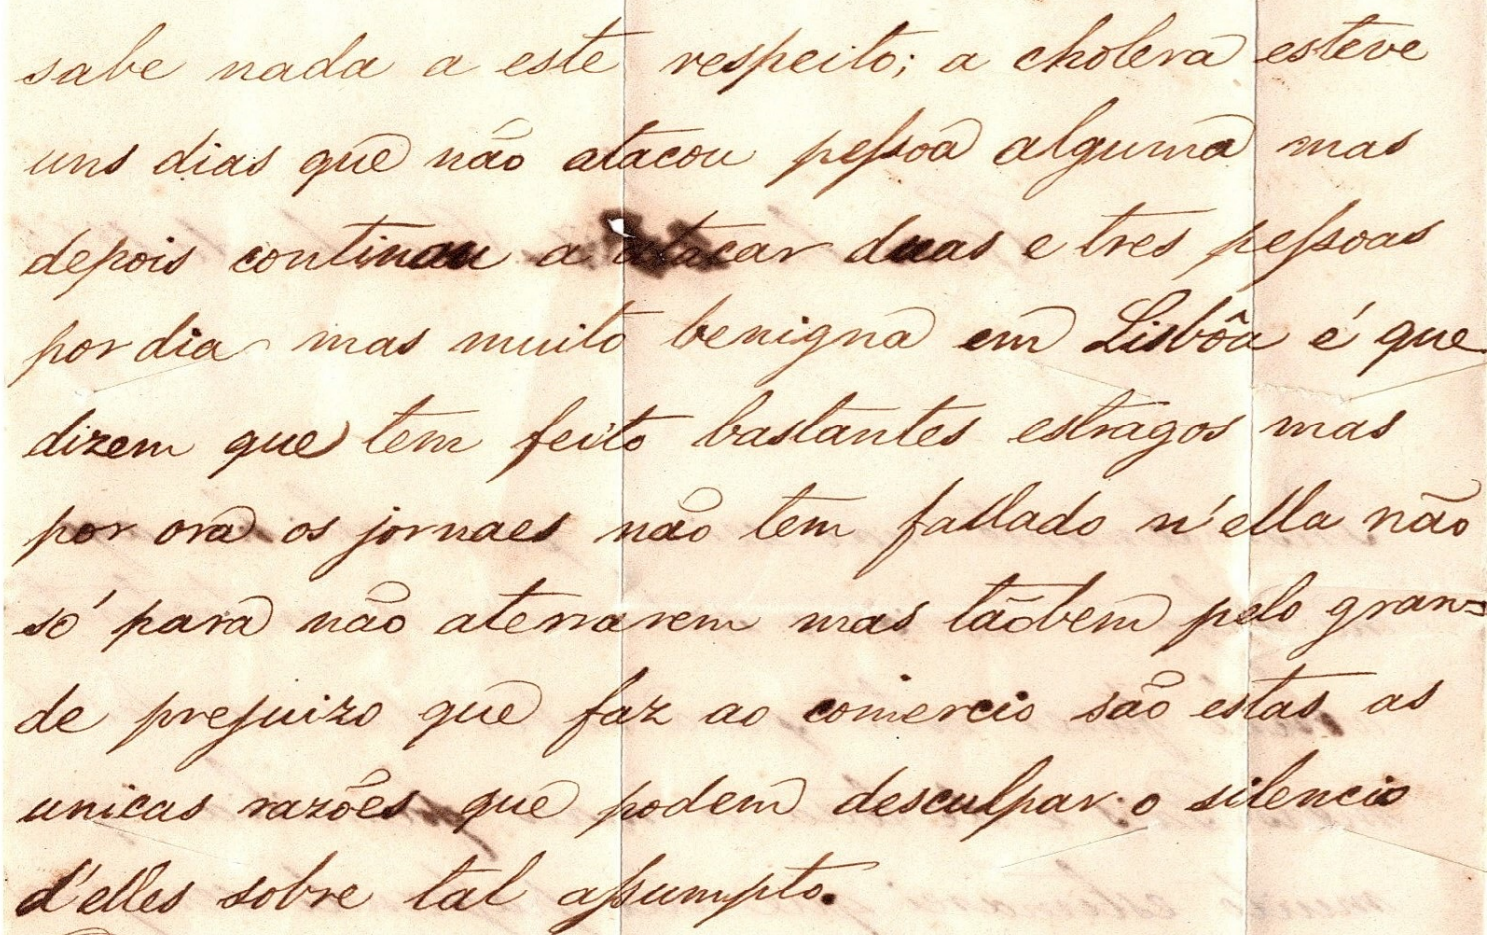 sabe nada a este respeito; a cholera esteve
uns dias que não atacou peſsoa alguma mas
depois continau a atacar duas e tres peſsoas
por dia mas muito benigna em Lisbôa é que
dizem que tem feito bastantes estragos mas
por ora os jornaes não tem fallado n'ella não
só para não aterrarem mas tãobem pelo gran=
de prejuizo que faz ao comercio são estas as
unicas razões que podem desculpar o silencio
d'elles sobre tal aſsumpto.